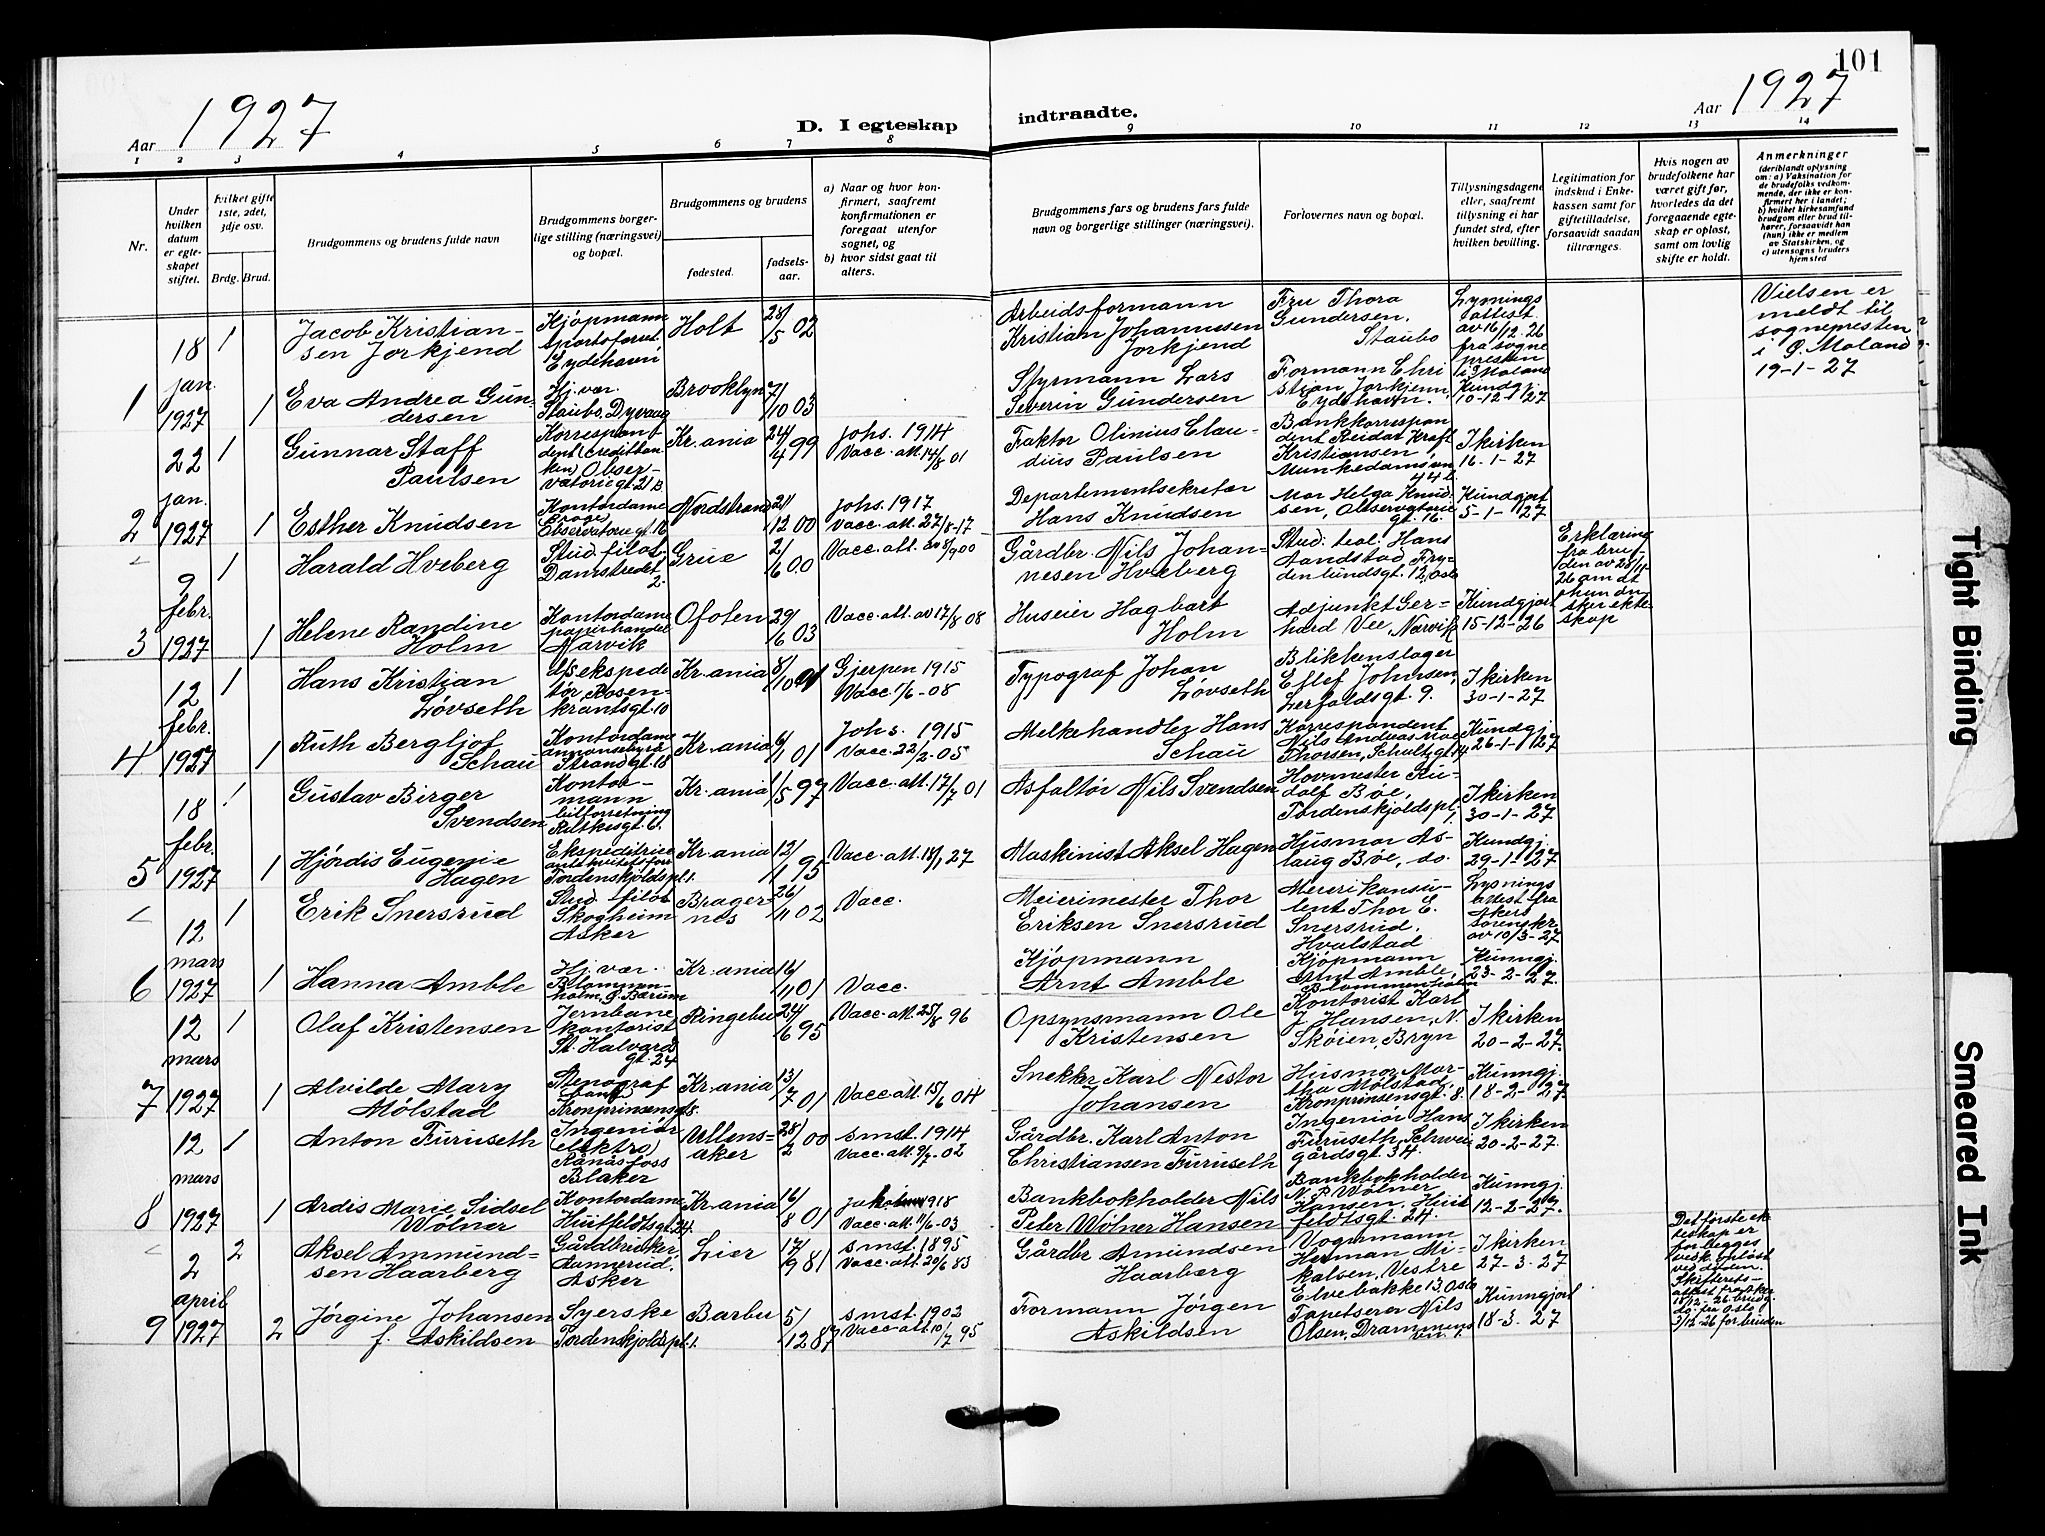 101
Aar 1927
D. I egteskap
indtraadte.
Aar 1927
1 2 3 4 5 6 7 8 9 10 11 12 13 14
Nr.
Under hvilken datum er egteskapet stiftet.
hvilket gifte 1ste, 2det, 3dje osv.
Brdg. Brud.
Brudgommens og brudens fulde navn
Brudgommens borgerlige stilling (næringsvei) og bopæl.
Brudgommens og brudens
fødested.
fødselsaar.
a) Naar og hvor konfirmert, saafremt konfirmationen er foregaat utenfor sognet, og
b) hvor sidst gaat til alters.
Brudgommens fars og brudens fars fulde navn og borgerlige stillinger (næringsvei).
Forlovernes navn og bopæl.
Tillysningsdagene eller, saafremt tillysning ei har fundet sted, efter hvilken bevilling.
Legitimation for indskud i Enkekassen samt for giftetilladelse, forsaavidt saadan tiltrænges.
Hvis nogen av brudefolkene har været gift før, hvorledes da det foregaaende egteskap er opløst, samt om lovlig skifte er holdt.
Anmerkninger
(deriblandt oplysning om: a) Vaksination for de brudefolks vedkommende, der ikke er konfirmert her i landet; b) hvilket kirkesamfund brudgom eller brud tilhører, forsaavidt han (hun) ikke er medlem av Statskirken, og c) utensogns bruders hjemsted
1
18 jan. 1927
1
Jacob Kristiansen Jorkjend
Kjøpmann sportsforret. Eydehavn
Holt
28/5 02
Arbeidsformann Kristian Johannessen Jorkjend
Fru Thora Gundersen, Staubo
Lysnings attest av 16/12.26 fra sognepresten i Ø. Moland
Vielsen er meldt til sognepresten i Ø. Moland 19-1-27
1
Eva Andrea Gundersen
Hj. vær. Staubo, Dyvaag
Brooklyn
7/10 03
Styrmann Lars Severin Gundersen
Formann Christian Jorkjenn, Eydehavn.
Kundgj. 10-12-1927
2
22 jan. 1927
1
Gunnar Staff Paulsen
Korrespondent (Creditbanken) Observatoriegt. 21 B
Kr.ania
24/4 99
Johs. 1914
Vacc. att. 14/8 01
Faktor Olinius Claudius Paulsen
Bankkorrespondent Reidar Kraft Kristiansen, Munkedamsvn 44 b.
I kirken 16-1-27
1
Esther Knudsen
Kontordame Observatoriegt. 16
Nordstrand
21/12 00
Johs. 1917
Vacc. att. 27/8-17
Departementsekretær Hans Knudsen
Mor Helga Knudsen, Observatoriegt. 16.
Kundgjort 5-1-1927
3
9 febr. 1927
1
Harald Hveberg
Stud. filos. Damstredet 2.
Grue
2/6 00
Vacc. att. av 8/9 00
Gårdbr. Nils Johannesen Hveberg
Stud. teol. Hans Aandstad, Frydenlundsgt. 12, Oslo
Erklæring fra
1
Helene Randine Holm
Kontordame papirhandel Narvik
Ofoten
29/6 03
Vacc. att. av 17/8 08
Huseier Hagbart Holm
Adjunkt Gerhard Vee, Narvik
Kundgjort 15-12-26
4
12 febr. 1927
1
Hans Kristian Løvseth
Ekspeditør Rosenkrantsgt. 10
Kr.ania
8/10
Gjerpen 1915
Vacc. 1/6-08
Typograf Johan Løvseth
Blikkenslager Eilef Johnsen, Lerfaldsgt. 9.
I kirken 30-1-27
1
Ruth Bergljot Schau
Kontordame annonsebyrå Strandgt. 18
Kr.ania
6/11 01
Johs. 1915
Vacc. 22/2-05
Melkehandler Hans Schau
Korrespondent Nils Andreas Moe Thorsen, Schultzgt. 14
Kundgj. 26-1-1927
5
18 febr. 1927
1
Gustav Birger Svendsen
Kontormann bilforretning Riltkesgt. 6.
Kr.ania
1/5 97
Vacc. att. 17/7 01
Asfaltør Nils Svendsen
Hovmester Rudolf Bøe, Tordenskjoldspl. 1.
I kirken 30-1-27
1
Hjørdis Eugenie Hagen
Ekspeditrice Tordenskjoldspl. 1.
Kr.ania
12/1 95
Vacc. att. 18/1 27
Maskinist Aksel Hagen
Husmor Aslaug Bøe, do.
Kundgj. 29-1-1927
6
12 mars 1927
1
Erik Snersrud
Stud. filol. Skogheim Asker
Bragernes
26/11 02
Vacc.
Meierimester Thor Eriksen Snersrud
Meierikonsulent Thor E. Snersrud, Hvalstad
Lysnings attest fra Akers sorenskr. av 10/3-27
1
Hanna Amble
Hj. vær. Blommenholm, Ø. Bærum
Kr.ania
16/11 01
Vacc.
Kjøpmann Arnt Amble
Kjøpmann Arnt Amble, Blommenholm
Kunngj. 23-2-1927.
7
12 mars 1927
1
Olaf Kristensen
Jernbanekontorist St. Halvards gt. 24
Ringebu
24/6 95
Vacc. att. 25/8 96
Opsynsmann Ole Kristensen
Kontorist Karl J. Hansen, N. Skøien, Bryn
I kirken 20-2-27.
1
Alvilde Mary Mølstad
Stenograf Kronprinsensgt. 8.
Kr.ania
13/7 01
Vacc att. 15/6 04
Snekker Karl Nestor Johansen
Husmor Martha Mølstad, Kronprinsensgt. 8.
Kunngj. 18-2-1927.
8
12 mars 1927
1
Anton Furuseth
Ingeniør (elektro) Rånåsfoss Blaker
Ullensaker
28/2 00
smst. 1914
Vacc. att. 9/7-02
Gårdbr. Karl Anton Christiansen Furuseth
Ingeniør Hans Furuseth, Schweigårdsgt. 34.
I kirken 20-2-27.
1
Ardis Marie Sidsel Wølner
Kontordame Huitfeldtsgt. 24.
Kr.ania
16/8 01
Jakob 1918
Vacc. att. 11/6-03
Bankbokholder Nils Peter Wølner Hansen
Bankbokholder N. P. Wølner Hansen, Huitfeldtsgt. 24.
Kunngj. 12-2-1927.
9
2 april 1927
2
Aksel Ammundsen Haarberg
Gårdbruker, Aamerud, Asker
Lier
17/9 81
smst. 1895
Vacc. att. 20/6 83
Gårdbr Amundsen Haarberg
Vognmann Herman Mikalsen, Vestre Elvebakke 13. Oslo
I kirken 27-3-27
Det første ekteskap er for begges vedk. opløst ved døden. Skifterets-attest
2
Jørgine Johansen f. Askildsen
Syerske Tordenskjoldspl. 1.
Barbu
5/12 87
smst. 1902
Vacc. att. 10/7 95
Formann Jørgen Askildsen
Tapetserer Nils Olsen, Drammensvn. 1.
Kunngjort 18-3-27
Tight Binding
Smeared Ink